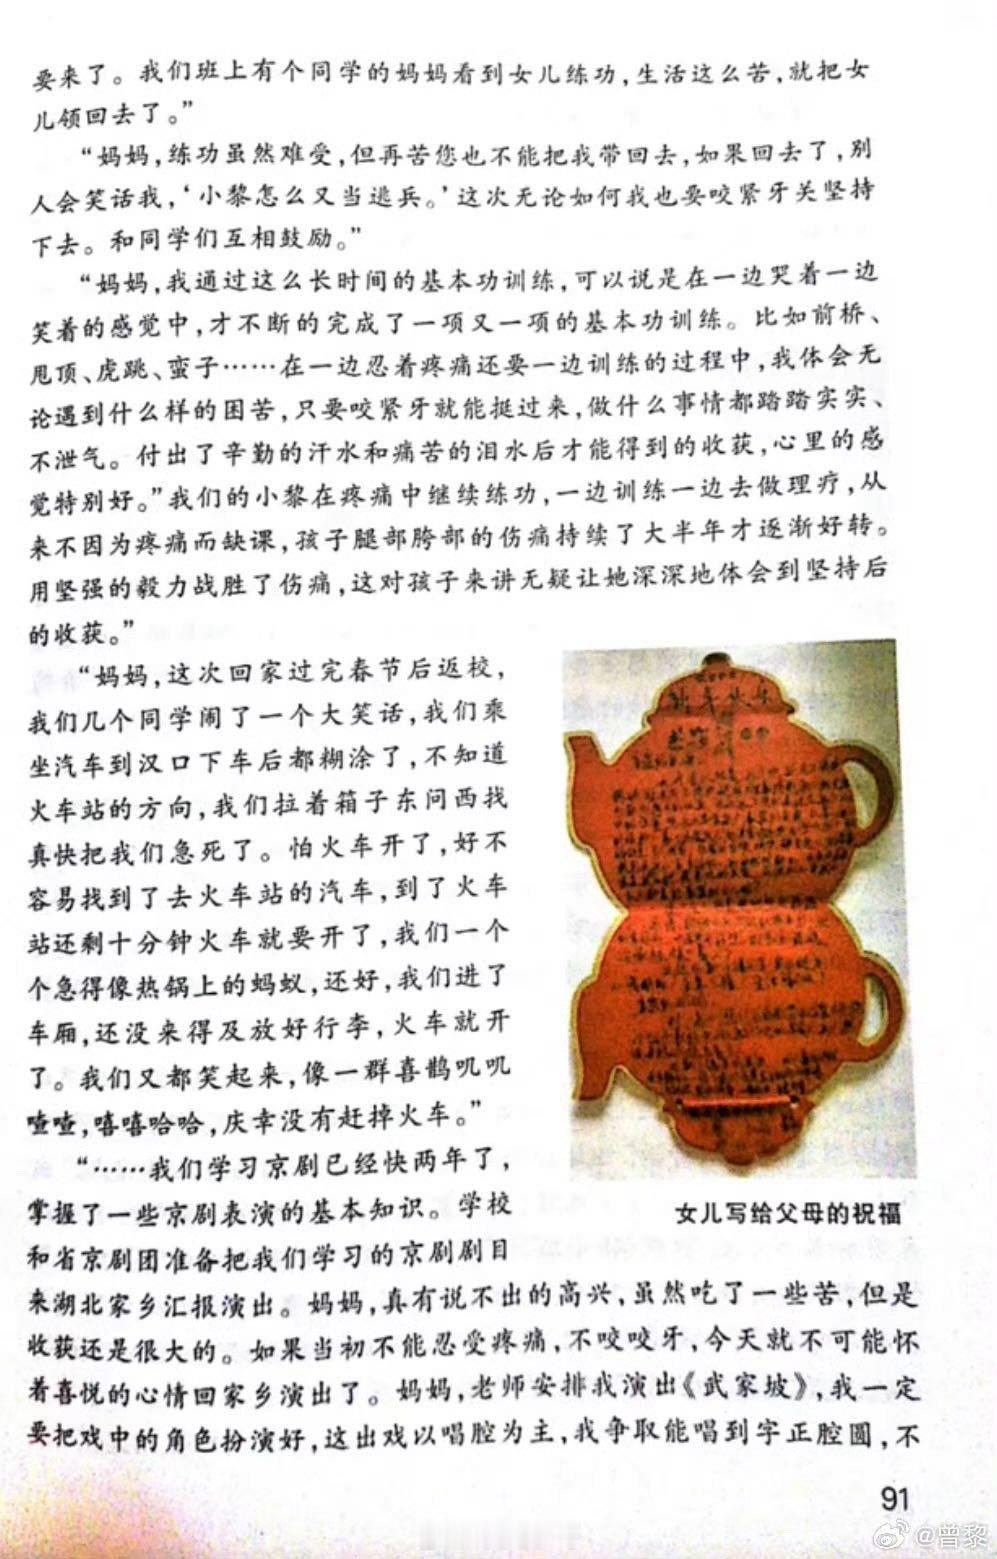 要来了。我们班上有个同学的妈妈看到女儿练功，生活这么苦，就把女
儿领回去了。”
“妈妈，练功虽然难受，但再苦您也不能把我带回去，如果回去了，别
人会笑话我，‘小黎怎么又当逃兵。’这次无论如何我也要咬紧牙关坚持
下去。和同学们互相鼓励。”
“妈妈，我通过这么长时间的基本功训练，可以说是在一边哭着一边
笑着的感觉中，才不断的完成了一项又一项的基本功训练。比如前桥、
甩顶、虎跳、蛮子……在一边忍着疼痛还要一边训练的过程中，我体会无
论遇到什么样的困苦，只要咬紧牙就能挺过来，做什么事情都踏踏实实、
不泄气。付出了辛勤的汗水和痛苦的泪水后才能得到的收获，心里的感
觉特别好。”我们的小黎在疼痛中继续练功，一边训练一边去做理疗，从
来不因为疼痛而缺课，孩子腿部胯部的伤痛持续了大半年才逐渐好转。
用坚强的毅力战胜了伤痛，这对孩子来讲无疑让她深深地体会到坚持后
的收获。”
“妈妈，这次回家过完春节后返校，
我们几个同学闹了一个大笑话，我们乘
坐汽车到汉口下车后都糊涂了，不知道
火车站的方向，我们拉着箱子东问西找
真快把我们急死了。怕火车开了，好不
容易找到了去火车站的汽车，到了火车
站还剩十分钟火车就要开了，我们一个
个急得像热锅上的蚂蚁，还好，我们进了
车厢，还没来得及放好行李，火车就开
了。我们又都笑起来，像一群喜鹊叽叽
喳喳，嘻嘻哈哈，庆幸没有赶掉火车。”
“……我们学习京剧已经快两年了，
掌握了一些京剧表演的基本知识。学校
和省京剧团准备把我们学习的京剧剧目
来湖北家乡汇报演出。妈妈，真有说不出的高兴，虽然吃了一些苦，但是
收获还是很大的。如果当初不能忍受疼痛，不咬咬牙，今天就不可能怀
着喜悦的心情回家乡演出了。妈妈，老师安排我演出《武家坡》，我一定
要把戏中的角色扮演好，这出戏以唱腔为主，我争取能唱到字正腔圆，不
女儿写给父母的祝福
91
@曾黎